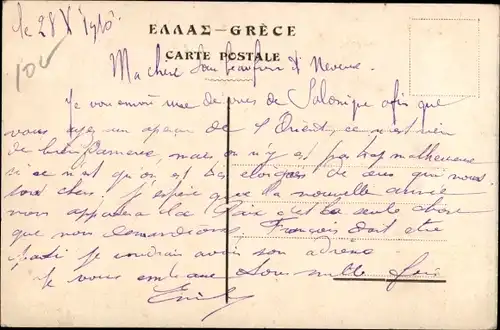 le 28 X 1916
100
ΕΛΛΑΣ – GRÈCE
CARTE POSTALE
Ma chère beaufrère et Neveux.
Je vous envoie une de vues de Salonique afin que
vous ayez un aperçu de l'Orient, ce n'est rien
de bien fameux, mais on n'y est pas trop malheureux
si ce n'est qu'on est très éloignés de ceux qui nous
sont chers, j'espère que la nouvelle année
vous apportera la Paix c'est la seule chose
que nous demandions, François doit être
parti je voudrais avoir son adresse
Je vous embrasse tous mille fois